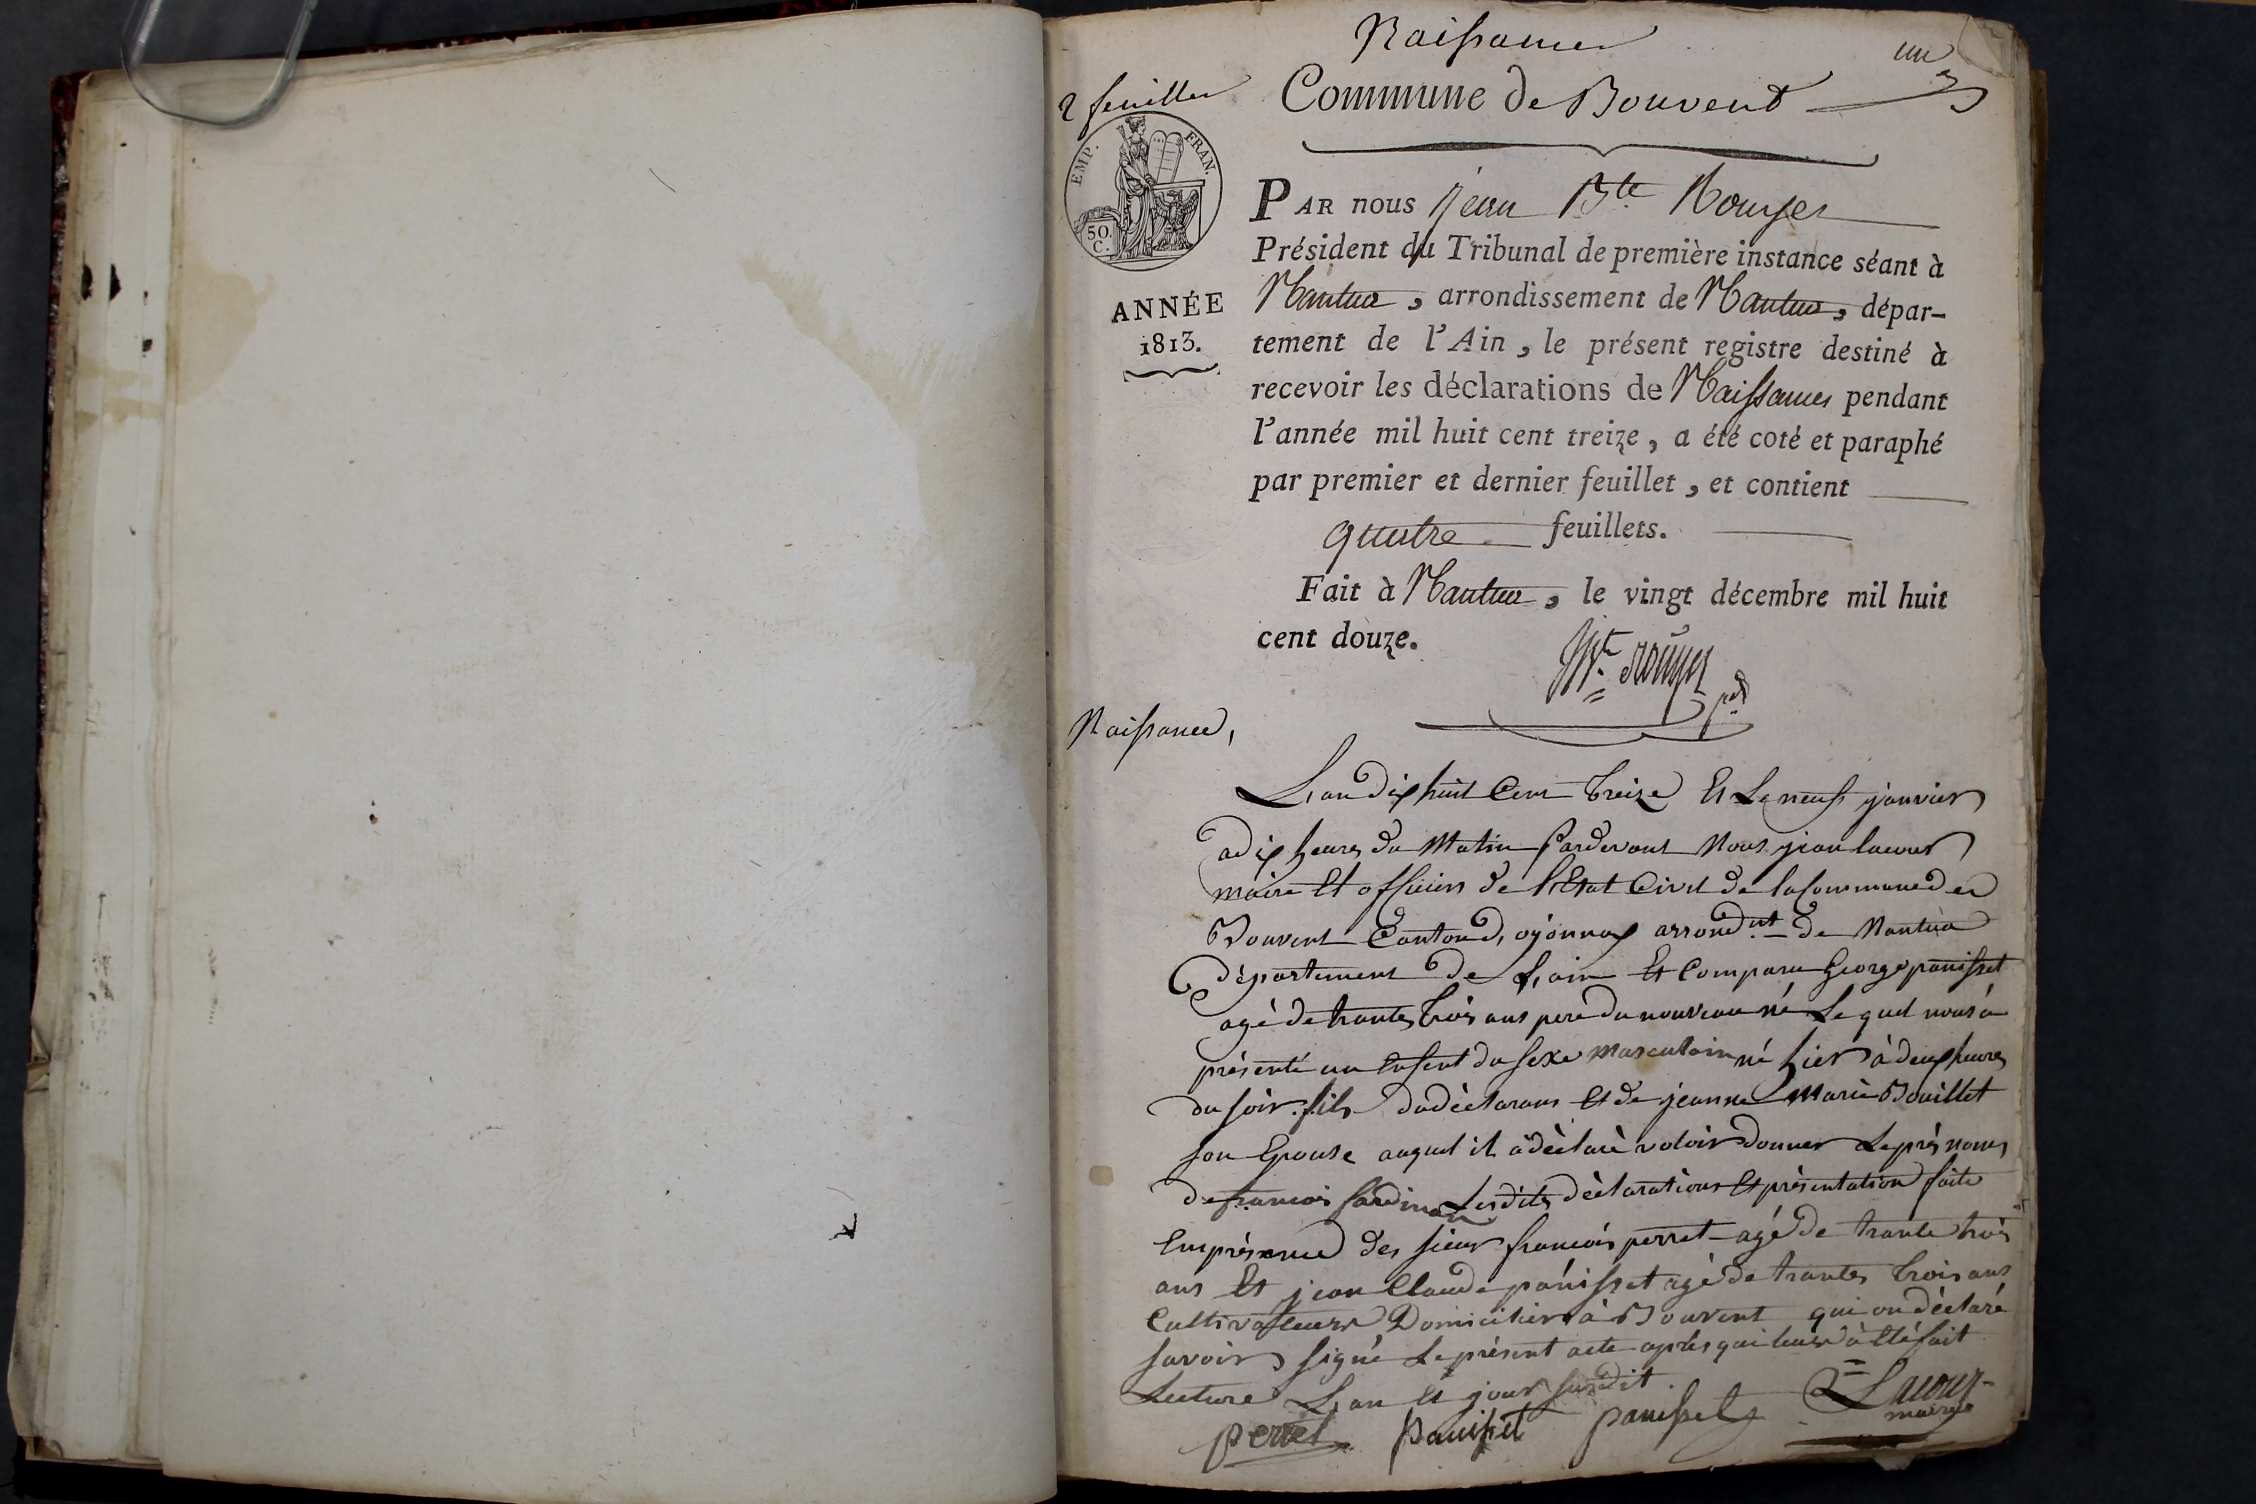 Naissances
un
2 feuilles
Commune de Bouvent
EMP. FRAN.
50.
C.
PAR nous Jean Bte Rouyer
Président du Tribunal de première instance séant à
Nantua, arrondissement de Nantua, dépar-
ANNÉE
1813.
tement de l'Ain, le présent registre destiné à
recevoir les déclarations de Naissances pendant
l'année mil huit cent treize, a été coté et paraphé
par premier et dernier feuillet, et contient
quatre feuillets.
Fait à Nantua, le vingt décembre mil huit
cent douze.
JBte Rouyer
pdt
Naissance,
L'an dix huit Cent treize Et Le neuf janvier
a dix heures du Matin Pardevant Nous jean lacour
maire Et officiers de l'Etat Civil de la Commune de
Bouvent Canton d'oyonnax arrondnt de Nantua
département de L'ain Et Comparu George panisset
agé de trantes trois ans pere du nouveau né Le quel nous à
présenté un Enfent du sexe Masculain né hier à deux heures
du soir fils du déclarans Et de jeanne Marie Bouillet
son Epouse auquel il à déclaré voloir donner Le près noms
de francois Lesdits déclarations Et présentation faite
En présence des sieur francois perret agé de trante trois
ans Et jean Claude panisset agé de trantes trois ans
Cultivateurs Domicilier à Bouvent qui on déclaré
savoir signé Le présent acte après qui leur à Eté fait
Lecture L'an Et jour susdit.
perret panisset panisset Lacour
maire